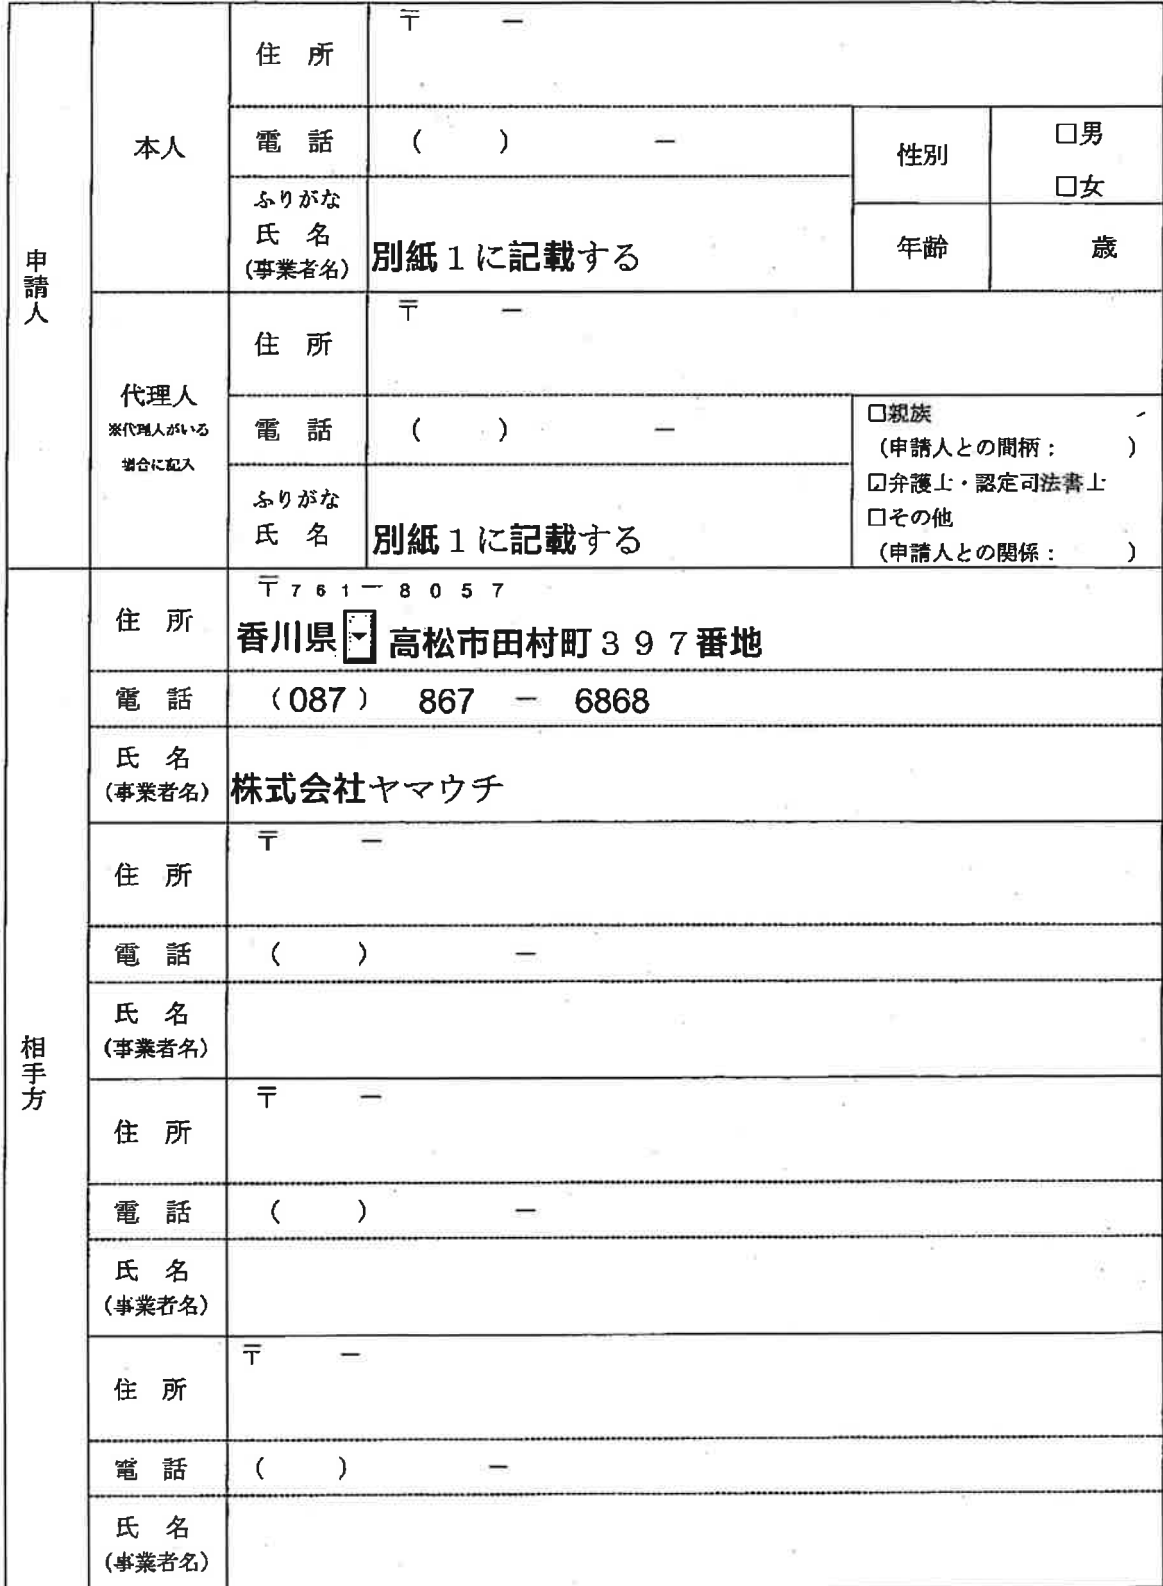 申請人
本人
住所
〒 －
電話
( ) －
性別
□男
□女
ふりがな
氏名
(事業者名)
別紙１に記載する
年齢
歳
代理人
※代理人がいる
場合に記入
住所
〒 －
電話
( ) －
□親族
(申請人との間柄： )
☑弁護士・認定司法書士
□その他
(申請人との関係： )
ふりがな
氏名
別紙１に記載する
相手方
住所
〒761－8057
香川県 高松市田村町３９７番地
電話
(087) 867 － 6868
氏名
(事業者名)
株式会社ヤマウチ
住所
〒 －
電話
( ) －
氏名
(事業者名)
住所
〒 －
電話
( ) －
氏名
(事業者名)
住所
〒 －
電話
( ) －
氏名
(事業者名)